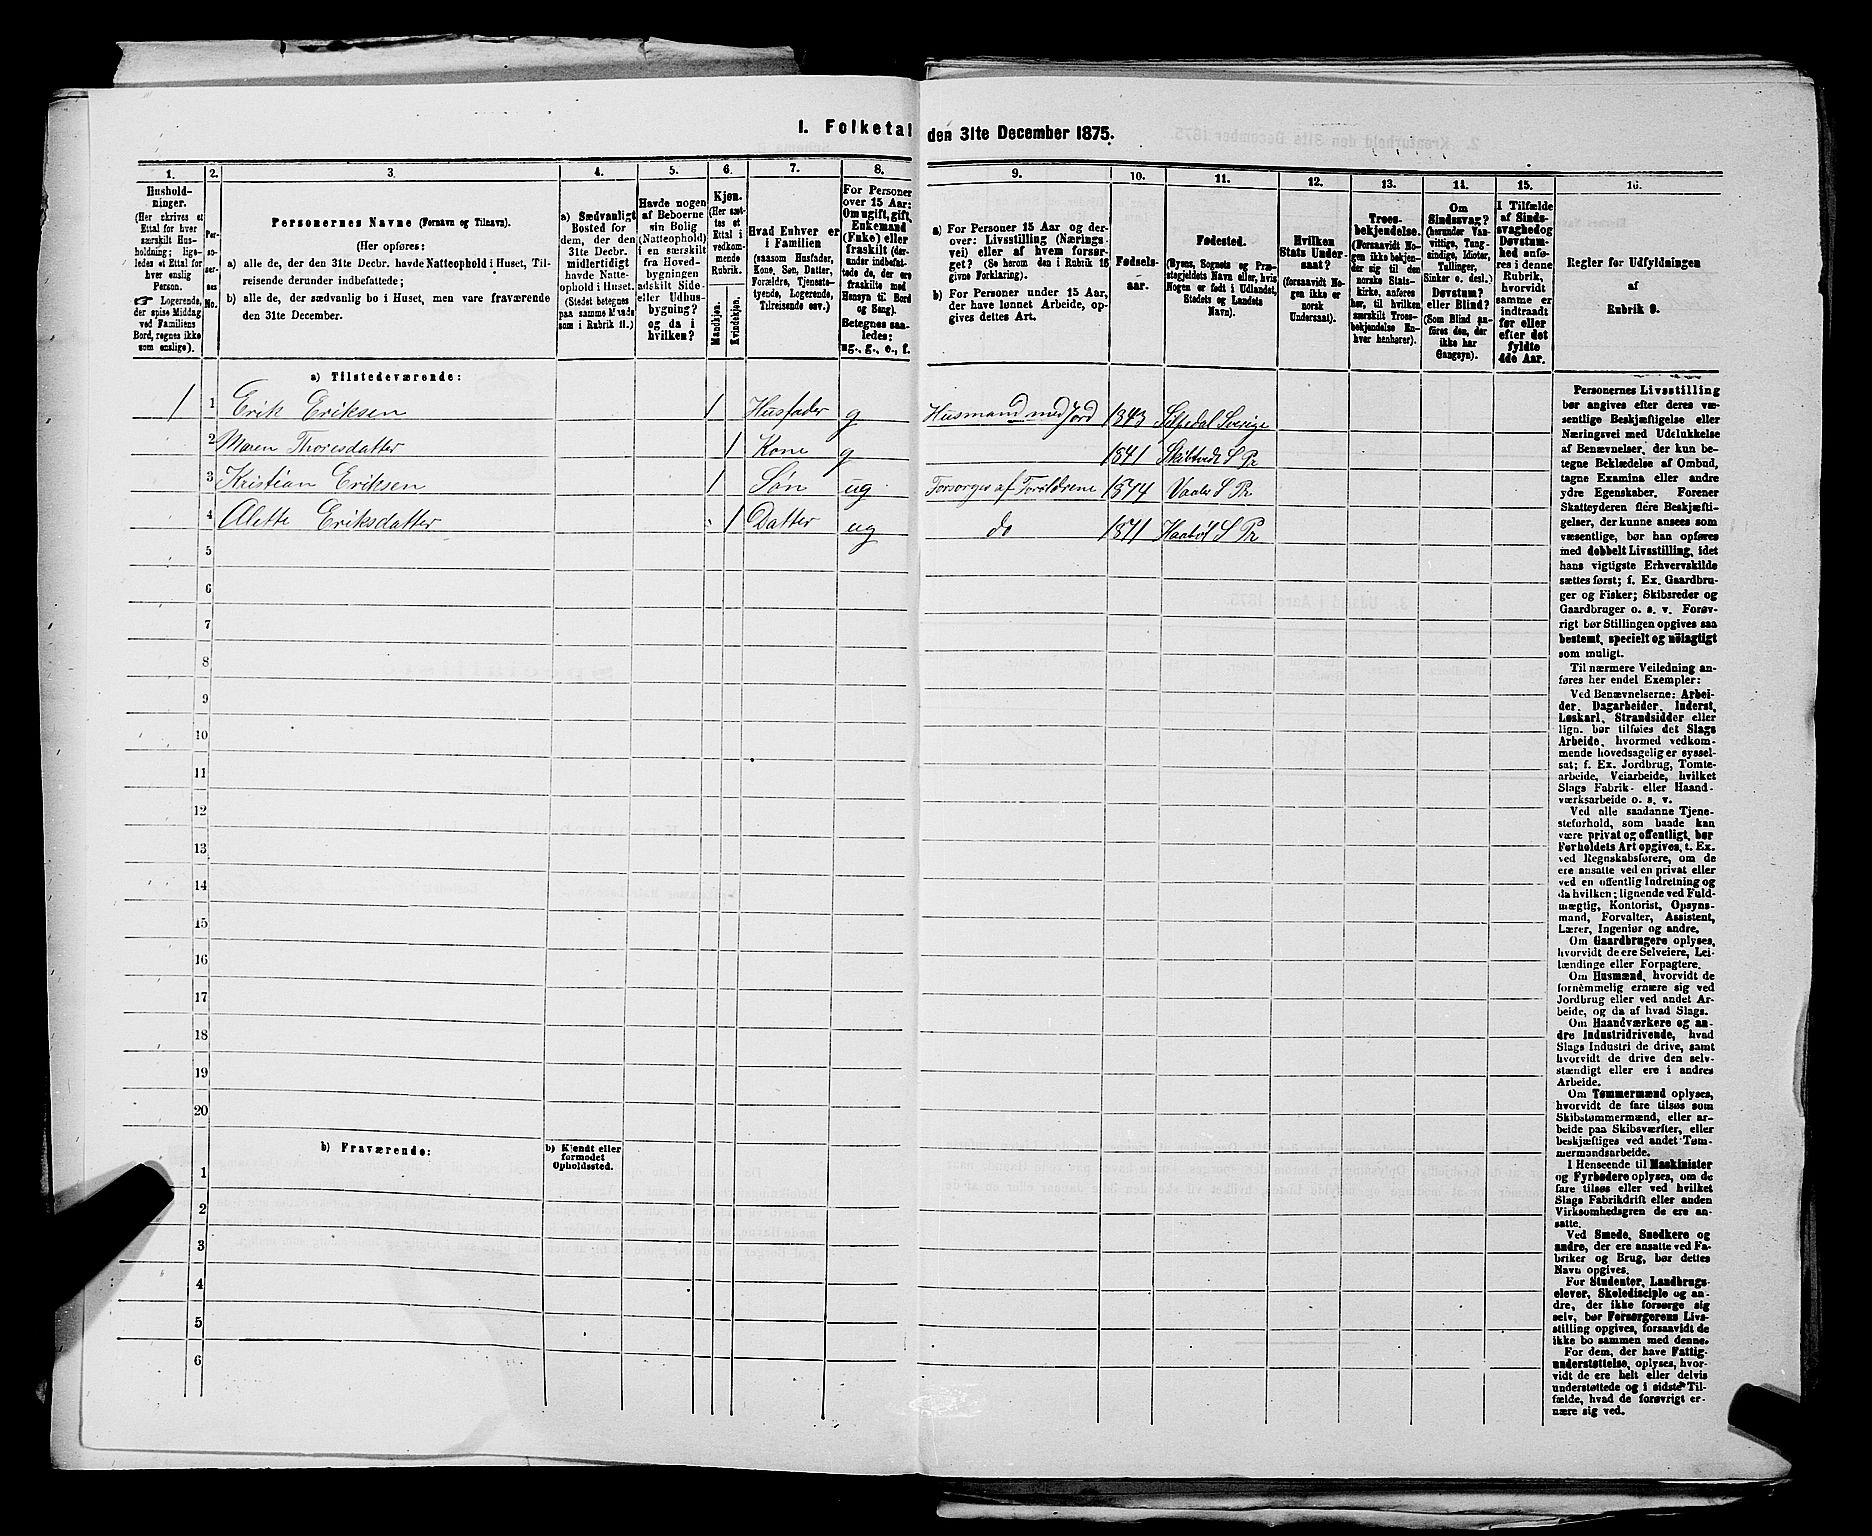 1. Folketal den 31te December 1875.
1. 2. 3. 4. 5. 6. 7. 8. 9. 10. 11. 12. 13. 14. 15. 16.
Hushold-
ninger.
(Her skrives et
Ettal for hver
særskilt Hus-
holdning; lige-
ledes et Ettal for
hver enslig
Person.
☛ Logerende,
der spise Middag
ved Familiens
Bord, regnes ikke
som enslige).
Per-
so-
ner-
nes
No.
Personernes Navne (Fornavn og Tilnavn).
(Her opføres:
a) alle de, der den 31te Decbr. havde Natteophold i Huset, Til-
reisende derunder indbefattede;
b) alle de, der sædvanlig bo i Huset, men vare fraværende
den 31te December.
a) Sædvanligt
Bosted for
dem, der den
31te Decbr.
midlertidigt
havde Natte-
ophold i Huset.
(Stedet betegnes
paa samme Maade
som i Rubrik 11.)
Havde nogen
af Beboerne
sin Bolig
(Natteophold)
i en særskilt
fra Hoved-
bygningen
adskilt Side-
eller Udhus-
bygning?
og da i
hvilken?
Kjøn.
(Her sæt-
tes et
Ettal i
vedkom-
mende
Rubrik.
Mandkjøn.
Kvindekjøn.
Hvad Enhver er
i Familien
(saasom Husfader,
Kone, Søn, Datter,
Forældre, Tjeneste-
tyende, Logerende,
Tilreisende osv.)
For Personer
over 15 Aar:
Om ugift, gift,
Enkemand
(Enke) eller
fraskilt (der-
under indbefat-
tede de, der ere
fraskilte med
Hensyn til Bord
og Seng).
Betegnes saa-
ledes:
ug., g., e., f.
a) For Personer 15 Aar og der-
over: Livsstilling (Nærings-
vei) eller af hvem forsør-
get? (Se herom den i Rubrik 16
givne Forklaring).
b) For Personer under 15 Aar,
der have lønnet Arbeide, op-
gives dettes Art.
Fødsels-
aar.
Fødested.
(Byens, Sognets og Præ-
stegjeldets Navn eller, hvis
Nogen er født i Udlandet,
Stedets og Landets
Navn).
Hvilken
Stats Under-
saat?
(forsaavidt No-
gen ikke er
norsk
Undersaat).
Troes-
bekjendelse.
(Forsaavidt No-
gen ikke bekjen-
der sig til den
norske Stats-
kirke, anføres
her, til hvilken
særskilt Troes-
bekjendelse En-
hver henhører).
Om
Sindssvag?
(herunder Van-
vittige, Tung-
sindige, Idioter,
Tullinger,
Sinker o. desl.)
Døvstum?
eller Blind?
(Som Blind an-
føres den, der
ikke har
Gangsyn).
I Tilfælde
af Sinds-
svaghed og
Døvstum-
hed anfø-
res i denne
Rubrik,
hvorvidt
samme er
indtraadt
før eller
efter det
fyldte
4de Aar.
Regler før Udfyldningen
af
Rubrik 9.
a) Tilstedeværende:
1 1 Erik Eriksen 1 Husfader g Husmand med Jord 1843 Sverige
2 Maren Thoresdatter 1 Kone g 1841 Skibtvedt S Pr
3 Kristian Eriksen 1 Søn ug Forsørges af Forældrene 1874 Vaaler S Pr
4 Alette Eriksdatter 1 Datter ug do 1871 Haabøl S Pr
5
6
7
8
9
10
11
12
13
14
15
16
17
18
19
20
b) Fraværende:
b) Kjendt eller
formodet
Opholdssted.
1
2
3
4
5
6
Personernes Livsstilling
bør angives efter deres væ-
sentlige Beskjæftigelse eller
Næringsvei med Udelukkelse
af Benævnelser, der kun be-
tegne Beklædelse af Ombud,
tagne Examina eller andre
ydre Egenskaber. Forener
Skatteyderen flere Beskjæfti-
gelser, der kunne ansees som
væsentlige, bør han opføres
med dobbelt Livsstilling, idet
hans vigtigste Erhvervskilde
sættes først; f. Ex. Gaardbru-
ger og Fisker; Skibsreder og
Gaardbruger o. s. v. Forøv-
rigt bør Stillingen opgives saa
bestemt, specielt og nøiagtigt
som muligt.
Til nærmere Veiledning an-
føres her endel Exempler:
Ved Benævnelserne: Arbei-
der, Dagarbeider, Inderst,
Løskarl, Strandsidder eller
lign. bør tilføies det Slags
Arbeide, hvormed vedkom-
mende hovedsagelig er syssel-
sat; f. Ex. Jordbrug, Tomte-
arbeide, Veiarbeide, hvilket
Slags Fabrik- eller Haand-
værksarbeide o. s. v.
Ved alle saadanne Tjene-
steforhold, som baade kan
være privat og offentligt, bør
Forholdets Art opgives, t. Ex.
ved Regnskabsførere, om de
ere ansatte ved en privat eller
ved en offentlig Indretning og
da hvilken; lignende ved Fuld-
mægtig, Kontorist, Opsyns-
mand, Forvalter, Assistent,
Lærer, Ingeniør og andre.
Om Gaardbrugere oplyses,
hvorvidt de ere Selveiere, Lei-
lændinge eller Forpagtere.
Om Husmænd, hvorvidt de
fornemmelig ernære sig ved
Jordbrug eller ved andet Ar-
beide, og da af hvad Slags.
Om Haandværkere og an-
dre Industridrivende, hvad
Slags Industri de drive, samt
hvorvidt de drive den selv-
stændigt eller ere i andres
Arbeide.
Om Tømmermænd oplyses,
hvorvidt de fare tilsøs som
Skibstømmermænd, eller ar-
beide paa Skibsværfter, eller
beskjæftiges ved andet Tøm-
mermandsarbeide.
I Henseende til Maskinister
og Fyrbødere oplyses, om de
fare tilsøs eller ved hvilket
Slags Fabrikdrift eller anden
Virksomhedsgren de ere an-
satte.
Ved Smede, Snedkere og
andre, der ere ansatte ved Fa-
briker og Brug, bør dettes
Navn opgives.
For Studenter, Landbrugs-
elever, Skoledisciple og an-
dre, der ikke forsørge sig
selv, bør Forsørgerens Livs-
stilling opgives, forsaavidt de
ikke bo sammen med denne.
For dem, der have Fattig-
understøttelse, oplyses, hvor-
vidt de ere helt eller delvis
understøttede og i sidste Til-
fælde, hvad de forøvrigt er-
nære sig ved.